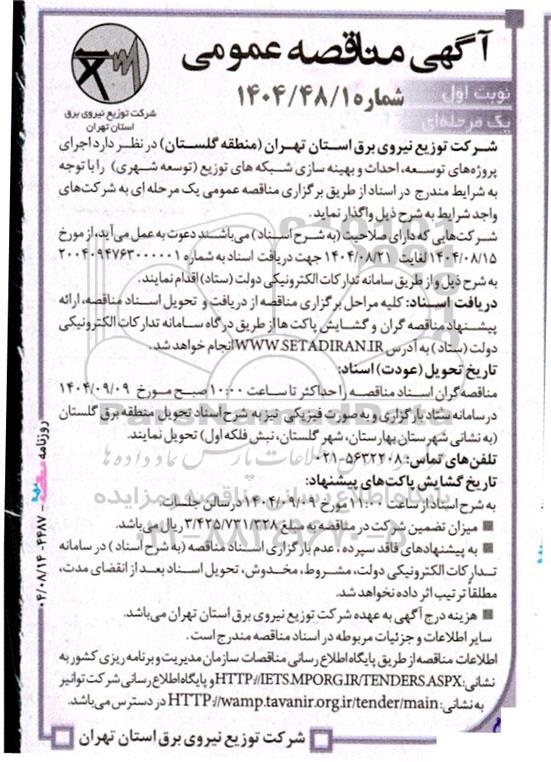 آگهی مناقصه عمومی
شماره ۱۴۰۴/۴۸/۱
نوبت اول
یک مرحله‌ای
شرکت توزیع نیروی برق
استان تهران
شرکت توزیع نیروی برق استان تهران (منطقه گلستان) در نظر دارد اجرای
پروژه‌های توسعه، احداث و بهینه سازی شبکه های توزیع (توسعه شهری) را با توجه
به شرایط مندرج در اسناد از طریق برگزاری مناقصه عمومی یک مرحله ای به شرکت‌های
واجد شرایط به شرح ذیل واگذار نماید.
شرکت‌هایی که دارای صلاحیت (به شرح اسناد) می‌باشند دعوت به عمل می‌آید، از مورخ
۱۴۰۴/۰۸/۱۵ لغایت ۱۴۰۴/۰۸/۲۱ جهت دریافت اسناد به شماره ۲۰۰۴۰۹۴۷۶۳۰۰۰۰۰۱
به شرح ذیل و از طریق سامانه تدارکات الکترونیکی دولت (ستاد) اقدام نمایند.
دریافت اسناد: کلیه مراحل برگزاری مناقصه از دریافت و تحویل اسناد مناقصه، ارائه
پیشنهاد مناقصه گران و گشایش پاکت ها از طریق درگاه سامانه تدارکات الکترونیکی
دولت (ستاد) به آدرس WWW.SETADIRAN.IR انجام خواهد شد.
تاریخ تحویل (عودت) اسناد:
مناقصه گران اسناد مناقصه را حداکثر تا ساعت ۱۰:۰۰ صبح مورخ ۱۴۰۴/۰۹/۰۹
در سامانه ستاد بارگزاری و به صورت فیزیکی نیز به شرح اسناد تحویل منطقه برق گلستان
(به نشانی شهرستان بهارستان، شهر گلستان، نبش فلکه اول) تحویل نمایند.
تلفن‌های تماس: ۵۶۳۲۲۰۸-۰۲۱
تاریخ گشایش پاکت‌های پیشنهاد:
به شرح اسناد از ساعت ۱۱:۰۰ مورخ ۱۴۰۴/۰۹/۰۹ در سالن جلسات.
میزان تضمین شرکت در مناقصه به مبلغ ۳/۴۲۵/۷۳۱/۳۲۸ ریال می‌باشد.
به پیشنهادهای فاقد سپرده، عدم بارگزاری اسناد مناقصه (به شرح اسناد) در سامانه
تدارکات الکترونیکی دولت، مشروط، مخدوش، تحویل اسناد بعد از انقضای مدت،
مطلقاً ترتیب اثر داده نخواهد شد.
هزینه درج آگهی به عهده شرکت توزیع نیروی برق استان تهران می‌باشد.
سایر اطلاعات و جزئیات مربوطه در اسناد مناقصه مندرج است.
اطلاعات مناقصه از طریق پایگاه اطلاع رسانی مناقصات سازمان مدیریت و برنامه ریزی کشور به
نشانی: HTTP://IETS.MPORG.IR/TENDERS.ASPX و پایگاه اطلاع رسانی شرکت توانیر
به نشانی: HTTP://wamp.tavanir.org.ir/tender/main در دسترس می‌باشد.
شرکت توزیع نیروی برق استان تهران
روزنامه مناقصه مزایده - ۴۴۸۷ - ۰۴/۰۸/۱۴
پایگاه اطلاع رسانی مناقصه و مزایده
۰۲۱-۸۸۳۴۹۶۷۰-۵